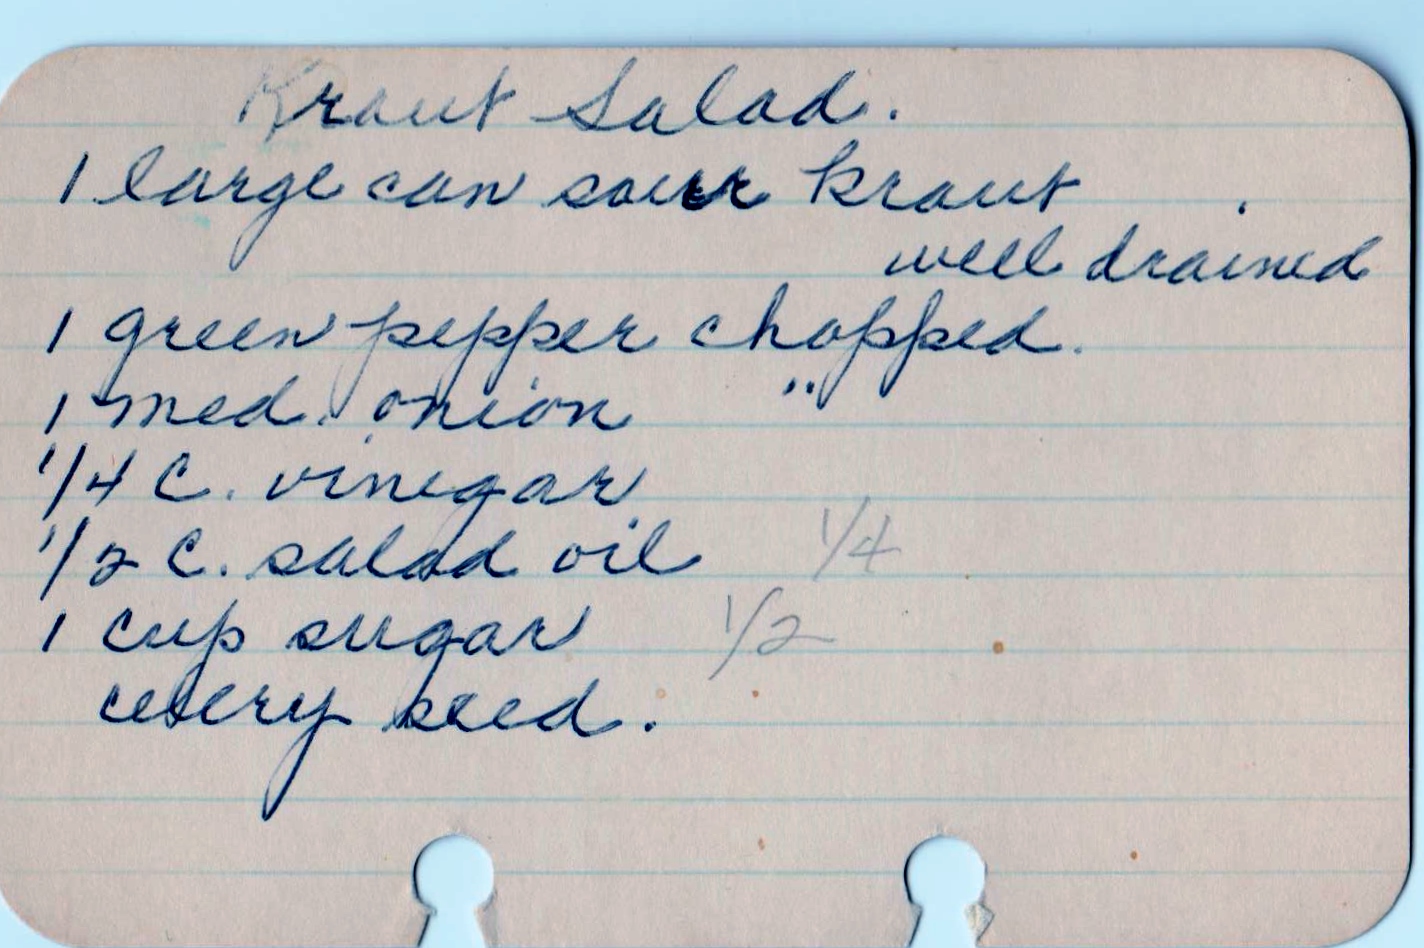 Kraut Salad.
1 large can sour kraut
well drained
1 green pepper chopped.
1 med. onion "
1/4 C. vinegar
1/2 C. salad oil 1/4
1 cup sugar 1/2
celery seed.